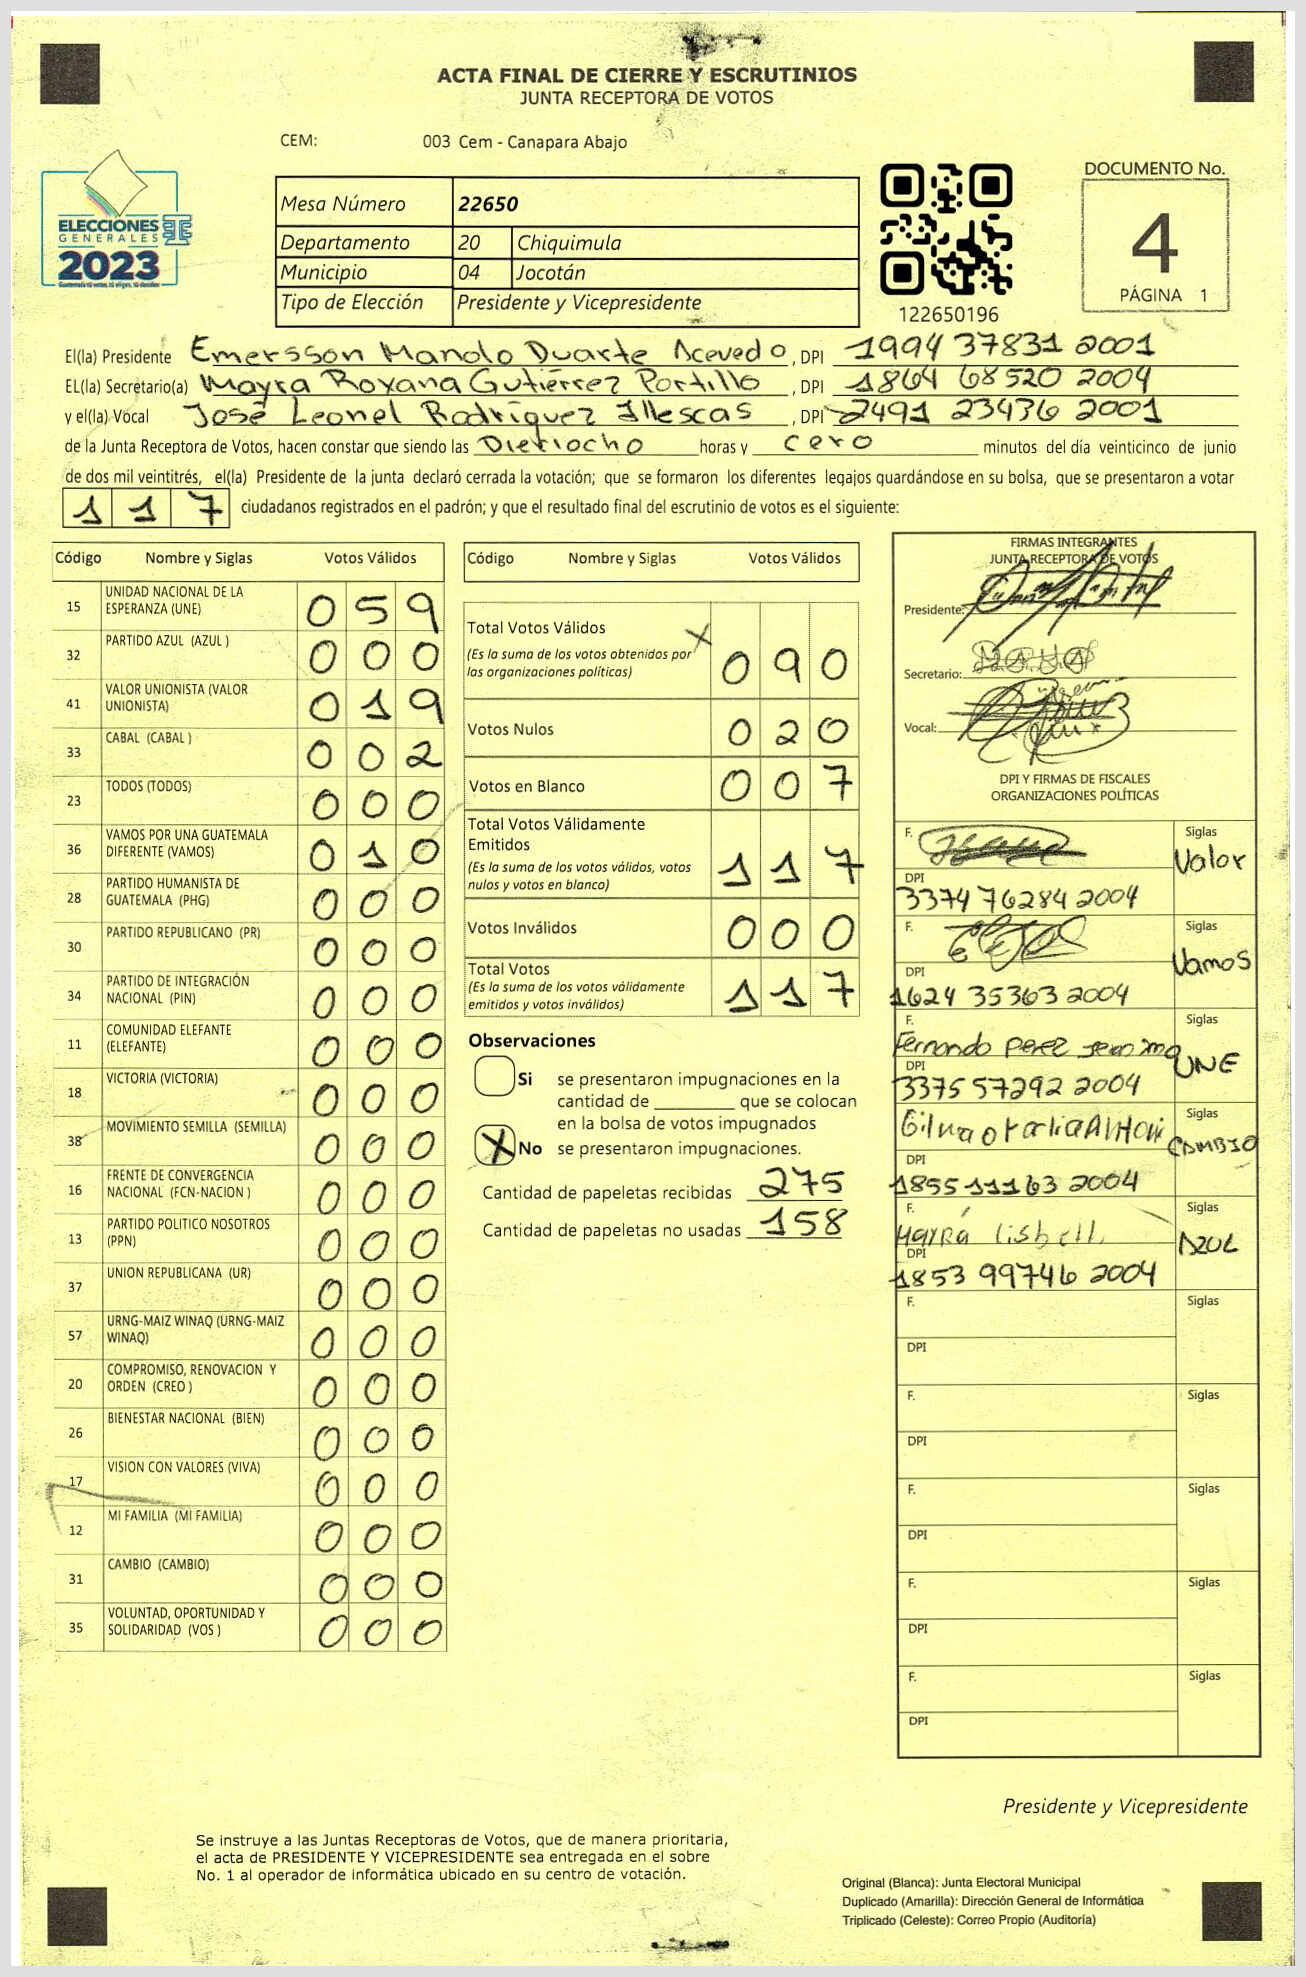 ACTA FINAL DE CIERRE Y ESCRUTINIOS
JUNTA RECEPTORA DE VOTOS
CEM: 003 Cem - Canapara Abajo
ELECCIONES
GENERALES
2023
Mesa Número 22650
Departamento 20 Chiquimula
Municipio 04 Jocotán
Tipo de Elección Presidente y Vicepresidente
122650196
DOCUMENTO No.
4
PÁGINA 1
El(la) Presidente Emersson Manolo Duarte Acevedo, DPI 1994 37831 2001
EL(la) Secretario(a) Mayra Roxana Gutiérrez Portillo, DPI 1864 68520 2004
y el(la) Vocal José Leonel Rodríguez Illescas, DPI 2491 23436 2001
de la Junta Receptora de Votos, hacen constar que siendo las Dieciocho horas y cero minutos del día veinticinco de junio
de dos mil veintitrés, el(la) Presidente de la junta declaró cerrada la votación; que se formaron los diferentes legajos guardándose en su bolsa, que se presentaron a votar
117 ciudadanos registrados en el padrón; y que el resultado final del escrutinio de votos es el siguiente:
Código Nombre y Siglas Votos Válidos
15 UNIDAD NACIONAL DE LA ESPERANZA (UNE) 059
32 PARTIDO AZUL (AZUL ) 000
41 VALOR UNIONISTA (VALOR UNIONISTA) 019
33 CABAL (CABAL ) 002
23 TODOS (TODOS) 000
36 VAMOS POR UNA GUATEMALA DIFERENTE (VAMOS) 010
28 PARTIDO HUMANISTA DE GUATEMALA (PHG) 000
30 PARTIDO REPUBLICANO (PR) 000
34 PARTIDO DE INTEGRACIÓN NACIONAL (PIN) 000
11 COMUNIDAD ELEFANTE (ELEFANTE) 000
18 VICTORIA (VICTORIA) 000
38 MOVIMIENTO SEMILLA (SEMILLA) 000
16 FRENTE DE CONVERGENCIA NACIONAL (FCN-NACION ) 000
13 PARTIDO POLITICO NOSOTROS (PPN) 000
37 UNION REPUBLICANA (UR) 000
57 URNG-MAIZ WINAQ (URNG-MAIZ WINAQ) 000
20 COMPROMISO, RENOVACION Y ORDEN (CREO ) 000
26 BIENESTAR NACIONAL (BIEN) 000
17 VISION CON VALORES (VIVA) 000
12 MI FAMILIA (MI FAMILIA) 000
31 CAMBIO (CAMBIO) 000
35 VOLUNTAD, OPORTUNIDAD Y SOLIDARIDAD (VOS ) 000
Código Nombre y Siglas Votos Válidos
Total Votos Válidos X 090
(Es la suma de los votos obtenidos por
las organizaciones políticas)
Votos Nulos 020
Votos en Blanco 007
Total Votos Válidamente
Emitidos 117
(Es la suma de los votos válidos, votos
nulos y votos en blanco)
Votos Inválidos 000
Total Votos 117
(Es la suma de los votos válidamente
emitidos y votos inválidos)
Observaciones
Si se presentaron impugnaciones en la
cantidad de ________ que se colocan
en la bolsa de votos impugnados
X No se presentaron impugnaciones.
Cantidad de papeletas recibidas 275
Cantidad de papeletas no usadas 158
FIRMAS INTEGRANTES
JUNTA RECEPTORA DE VOTOS
Presidente:
Secretario:
Vocal:
DPI Y FIRMAS DE FISCALES
ORGANIZACIONES POLÍTICAS
F. Siglas Valor
DPI 3374 76284 2004
F. Siglas Vamos
DPI 1624 35363 2004
F. Fernando perez Siglas UNE
DPI 3375 57292 2004
Siglas CAMBIO
DPI 1855 11163 2004
F. Mayra Lisbell Siglas AZUL
DPI 1853 99746 2004
F. Siglas
DPI
F. Siglas
DPI
F. Siglas
DPI
F. Siglas
DPI
F. Siglas
DPI
Presidente y Vicepresidente
Se instruye a las Juntas Receptoras de Votos, que de manera prioritaria,
el acta de PRESIDENTE Y VICEPRESIDENTE sea entregada en el sobre
No. 1 al operador de informática ubicado en su centro de votación.
Original (Blanca): Junta Electoral Municipal
Duplicado (Amarilla): Dirección General de Informática
Triplicado (Celeste): Correo Propio (Auditoría)